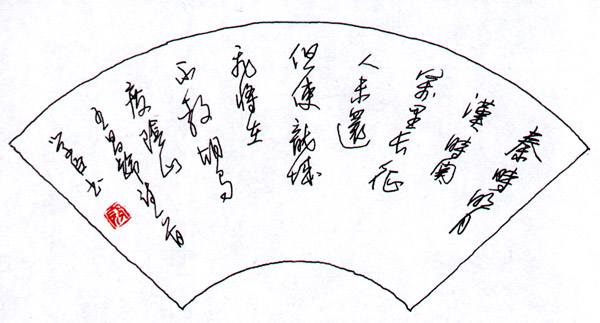 秦時明月
漢時關
萬里長征
人未還
但使龍城
飛將在
不教胡馬
度陰山
王昌齡詩首
书